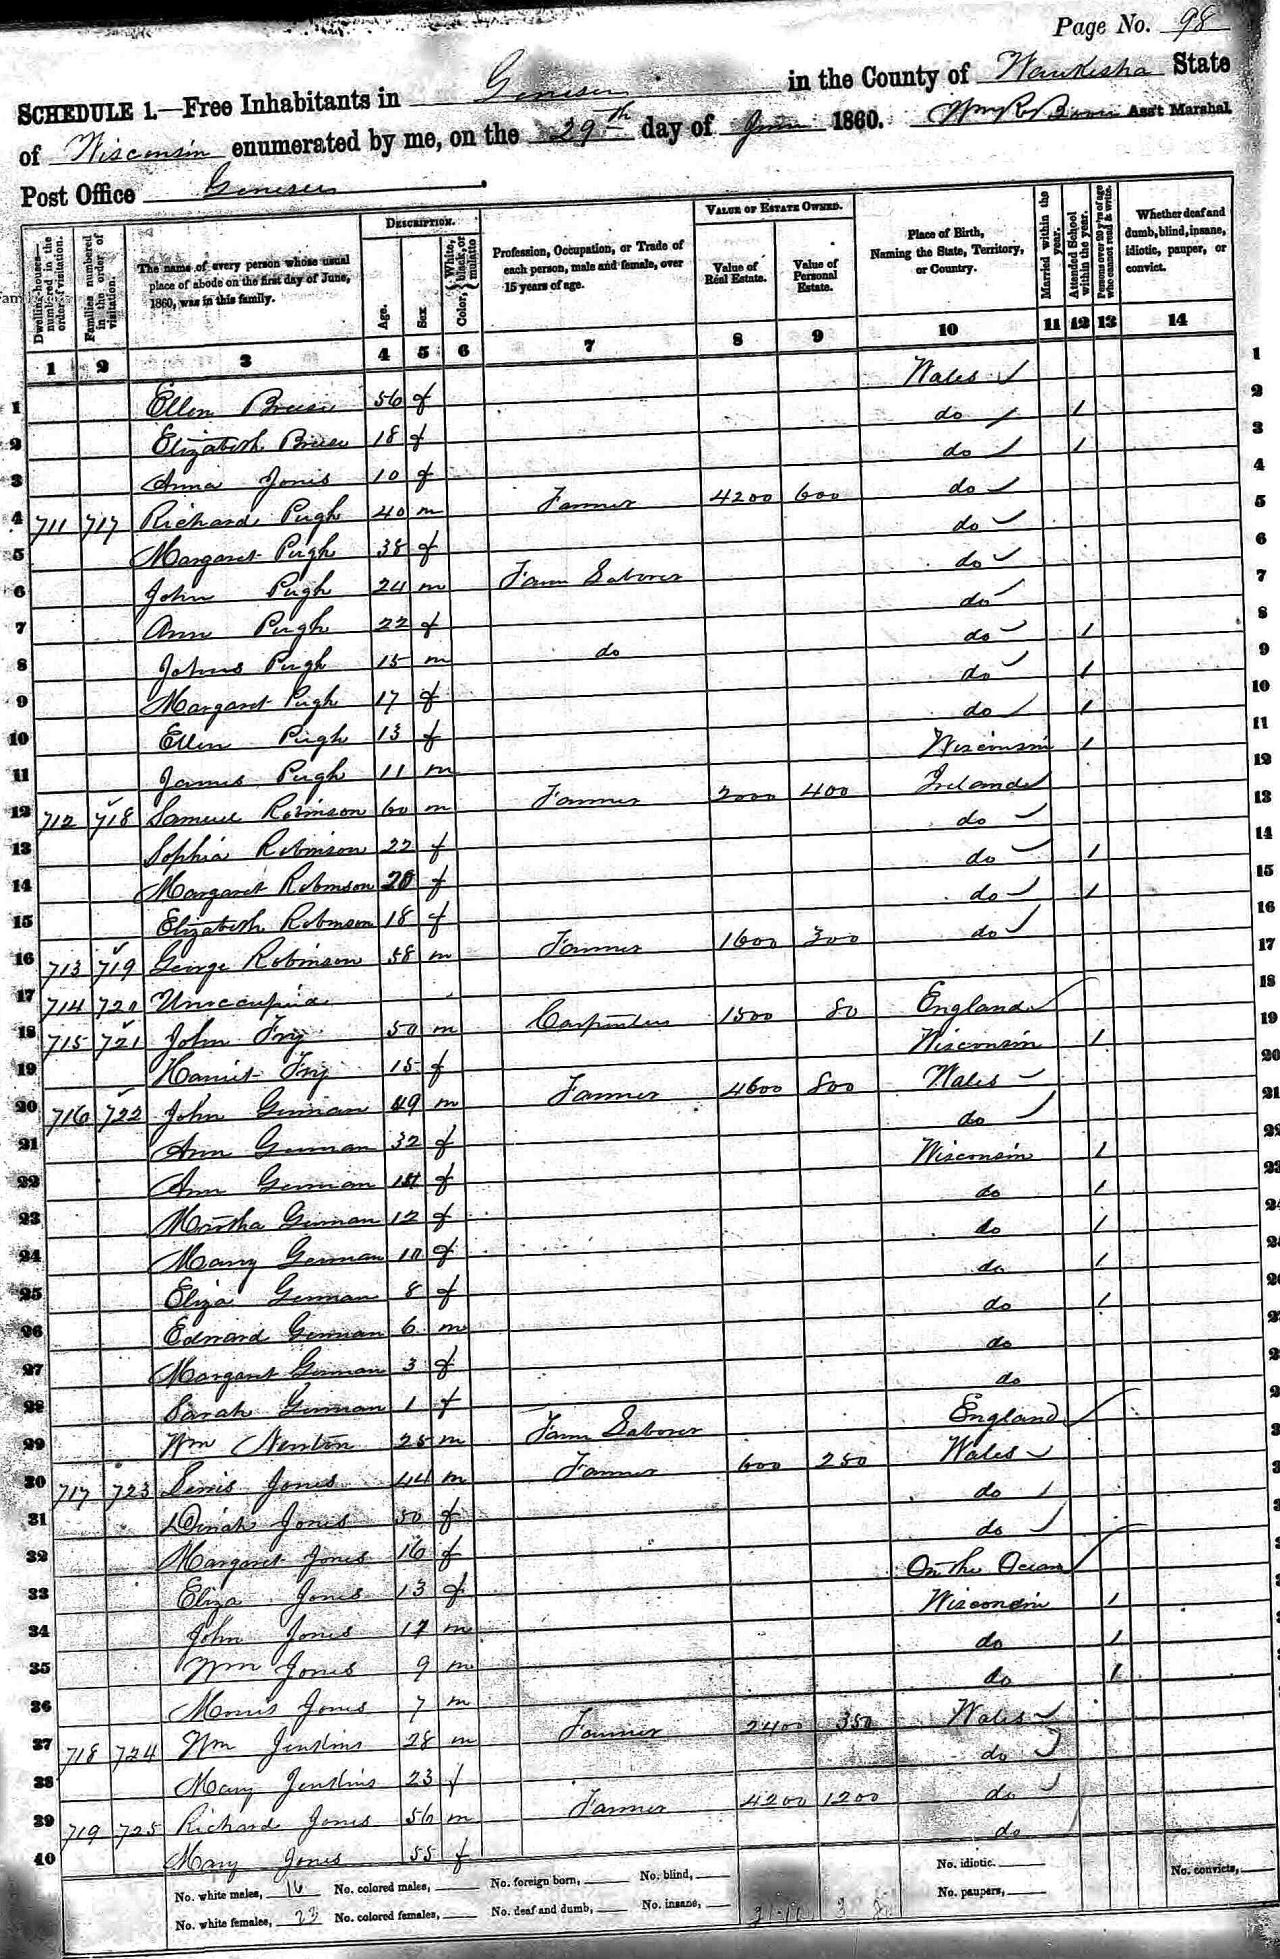 Page No. 98
SCHEDULE 1.—Free Inhabitants in Genesee in the County of Waukesha State
of Wisconsin enumerated by me, on the 29th day of June 1860. Wm R Ass't Marshal.
Post Office Genesee
Dwelling-houses—numbered in the order of visitation.
Families numbered in the order of visitation.
The name of every person whose usual place of abode on the first day of June, 1860, was in this family.
DESCRIPTION.
Age.
Sex
Color, { White, black, or mulatto
Profession, Occupation, or Trade of each person, male and female, over 15 years of age.
VALUE OF ESTATE OWNED.
Value of Real Estate.
Value of Personal Estate.
Place of Birth, Naming the State, Territory, or Country.
Married within the year.
Attended School within the year.
Persons over 20 y'rs of age who cannot read & write.
Whether deaf and dumb, blind, insane, idiotic, pauper, or convict.
1 2 3 4 5 6 7 8 9 10 11 12 13 14
1 Ellen Breese 56 f Wales 1
2 Elizabeth Breese 18 f do 1 2
3 Anna Jones 10 f do 1 3
4 711 717 Richard Pugh 40 m Farmer 4200 600 do 4
5 Margaret Pugh 38 f do 5
6 John Pugh 24 m Farm Laborer do 6
7 Ann Pugh 22 f do 7
8 Johns Pugh 15 m do do 1 8
9 Margaret Pugh 17 f do 1 9
10 Ellen Pugh 13 f do 1 10
11 James Pugh 11 m Wisconsin 1 11
12 712 718 Samuel Robinson 60 m Farmer 2000 400 Ireland 12
13 Sophia Robinson 22 f do 13
14 Margaret Robinson 20 f do 1 14
15 Elizabeth Robinson 18 f do 1 15
16 713 719 George Robinson 58 m Farmer 1600 300 do 16
17 714 720 Unoccupied 17
18 715 721 John Fry 50 m Carpenter 1500 80 England 18
19 Harriet Fry 15 f Wisconsin 1 19
20 716 722 John German 49 m Farmer 4600 800 Wales 20
21 Ann German 32 f do 21
22 Ann German 14 f Wisconsin 1 22
23 Martha German 12 f do 1 23
24 Mary German 10 f do 1 24
25 Eliza German 8 f do 1
26 Edward German 6 m do 1
27 Margaret German 3 f do
28 Sarah German 1 f do
29 Wm Newton 25 m Farm Laborer England
30 717 723 Lewis Jones 44 m Farmer 600 250 Wales
31 Dinah Jones 50 f do
32 Margaret Jones 16 f do
33 Eliza Jones 13 f On the Ocean
34 John Jones 17 m Wisconsin 1
35 Wm Jones 9 m do 1
36 Morris Jones 7 m do 1
37 718 724 Wm Jenkins 28 m Farmer 2400 350 Wales
38 Mary Jenkins 23 f do
39 719 725 Richard Jones 56 m Farmer 4200 1200 do
40 Mary Jones 55 f do
No. white males, 16 No. colored males, No. foreign born, No. blind, No. idiotic. No. convicts,
No. white females, 23 No. colored females, No. deaf and dumb, No. insane, No. paupers,